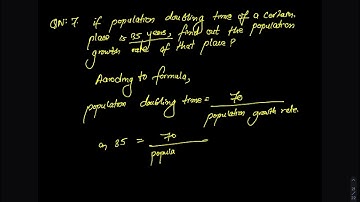 QN: 7. if population doubling time of a certain
place is 35 years, find out the population
growth rate of that place?
According to formula,
population doubling time = 70 / population growth rate
or, 35 = 70 / popula